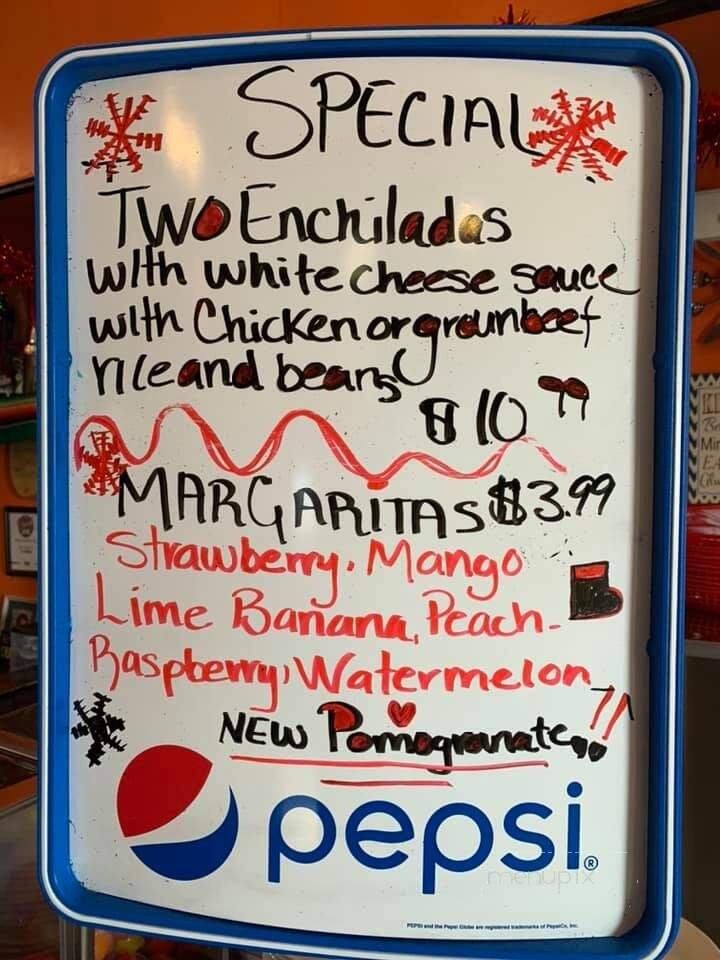 SPECIAL
TWO Enchiladas
with white cheese sauce
with Chicken or grounbeef
rice and beans
$10.99
MARGARITAS $3.99
Strawberry. Mango
Lime Banana, Peach.
Raspberry, Watermelon
NEW Pomogranate
pepsi®
menupix
PEPSI and the Pepsi Globe are registered trademarks of PepsiCo, Inc.